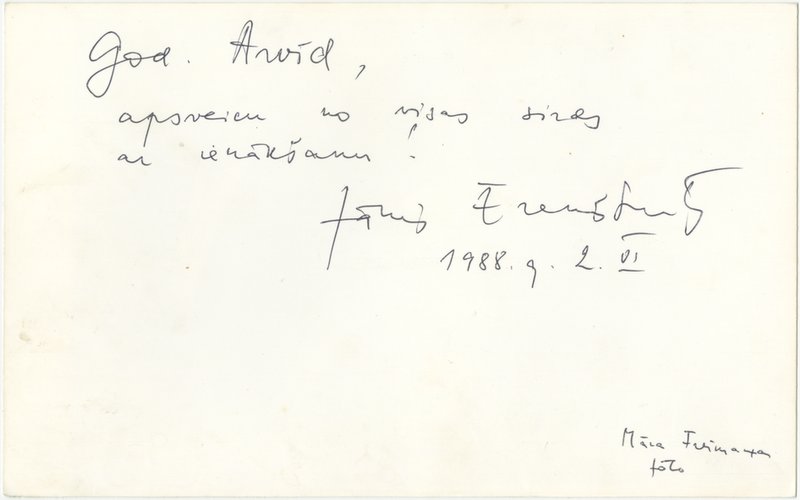 God. Arvīd,
apsveicu no visas sirds
ar ienākšanu!
Jānis
1988. g. 2. VI
Māra
foto